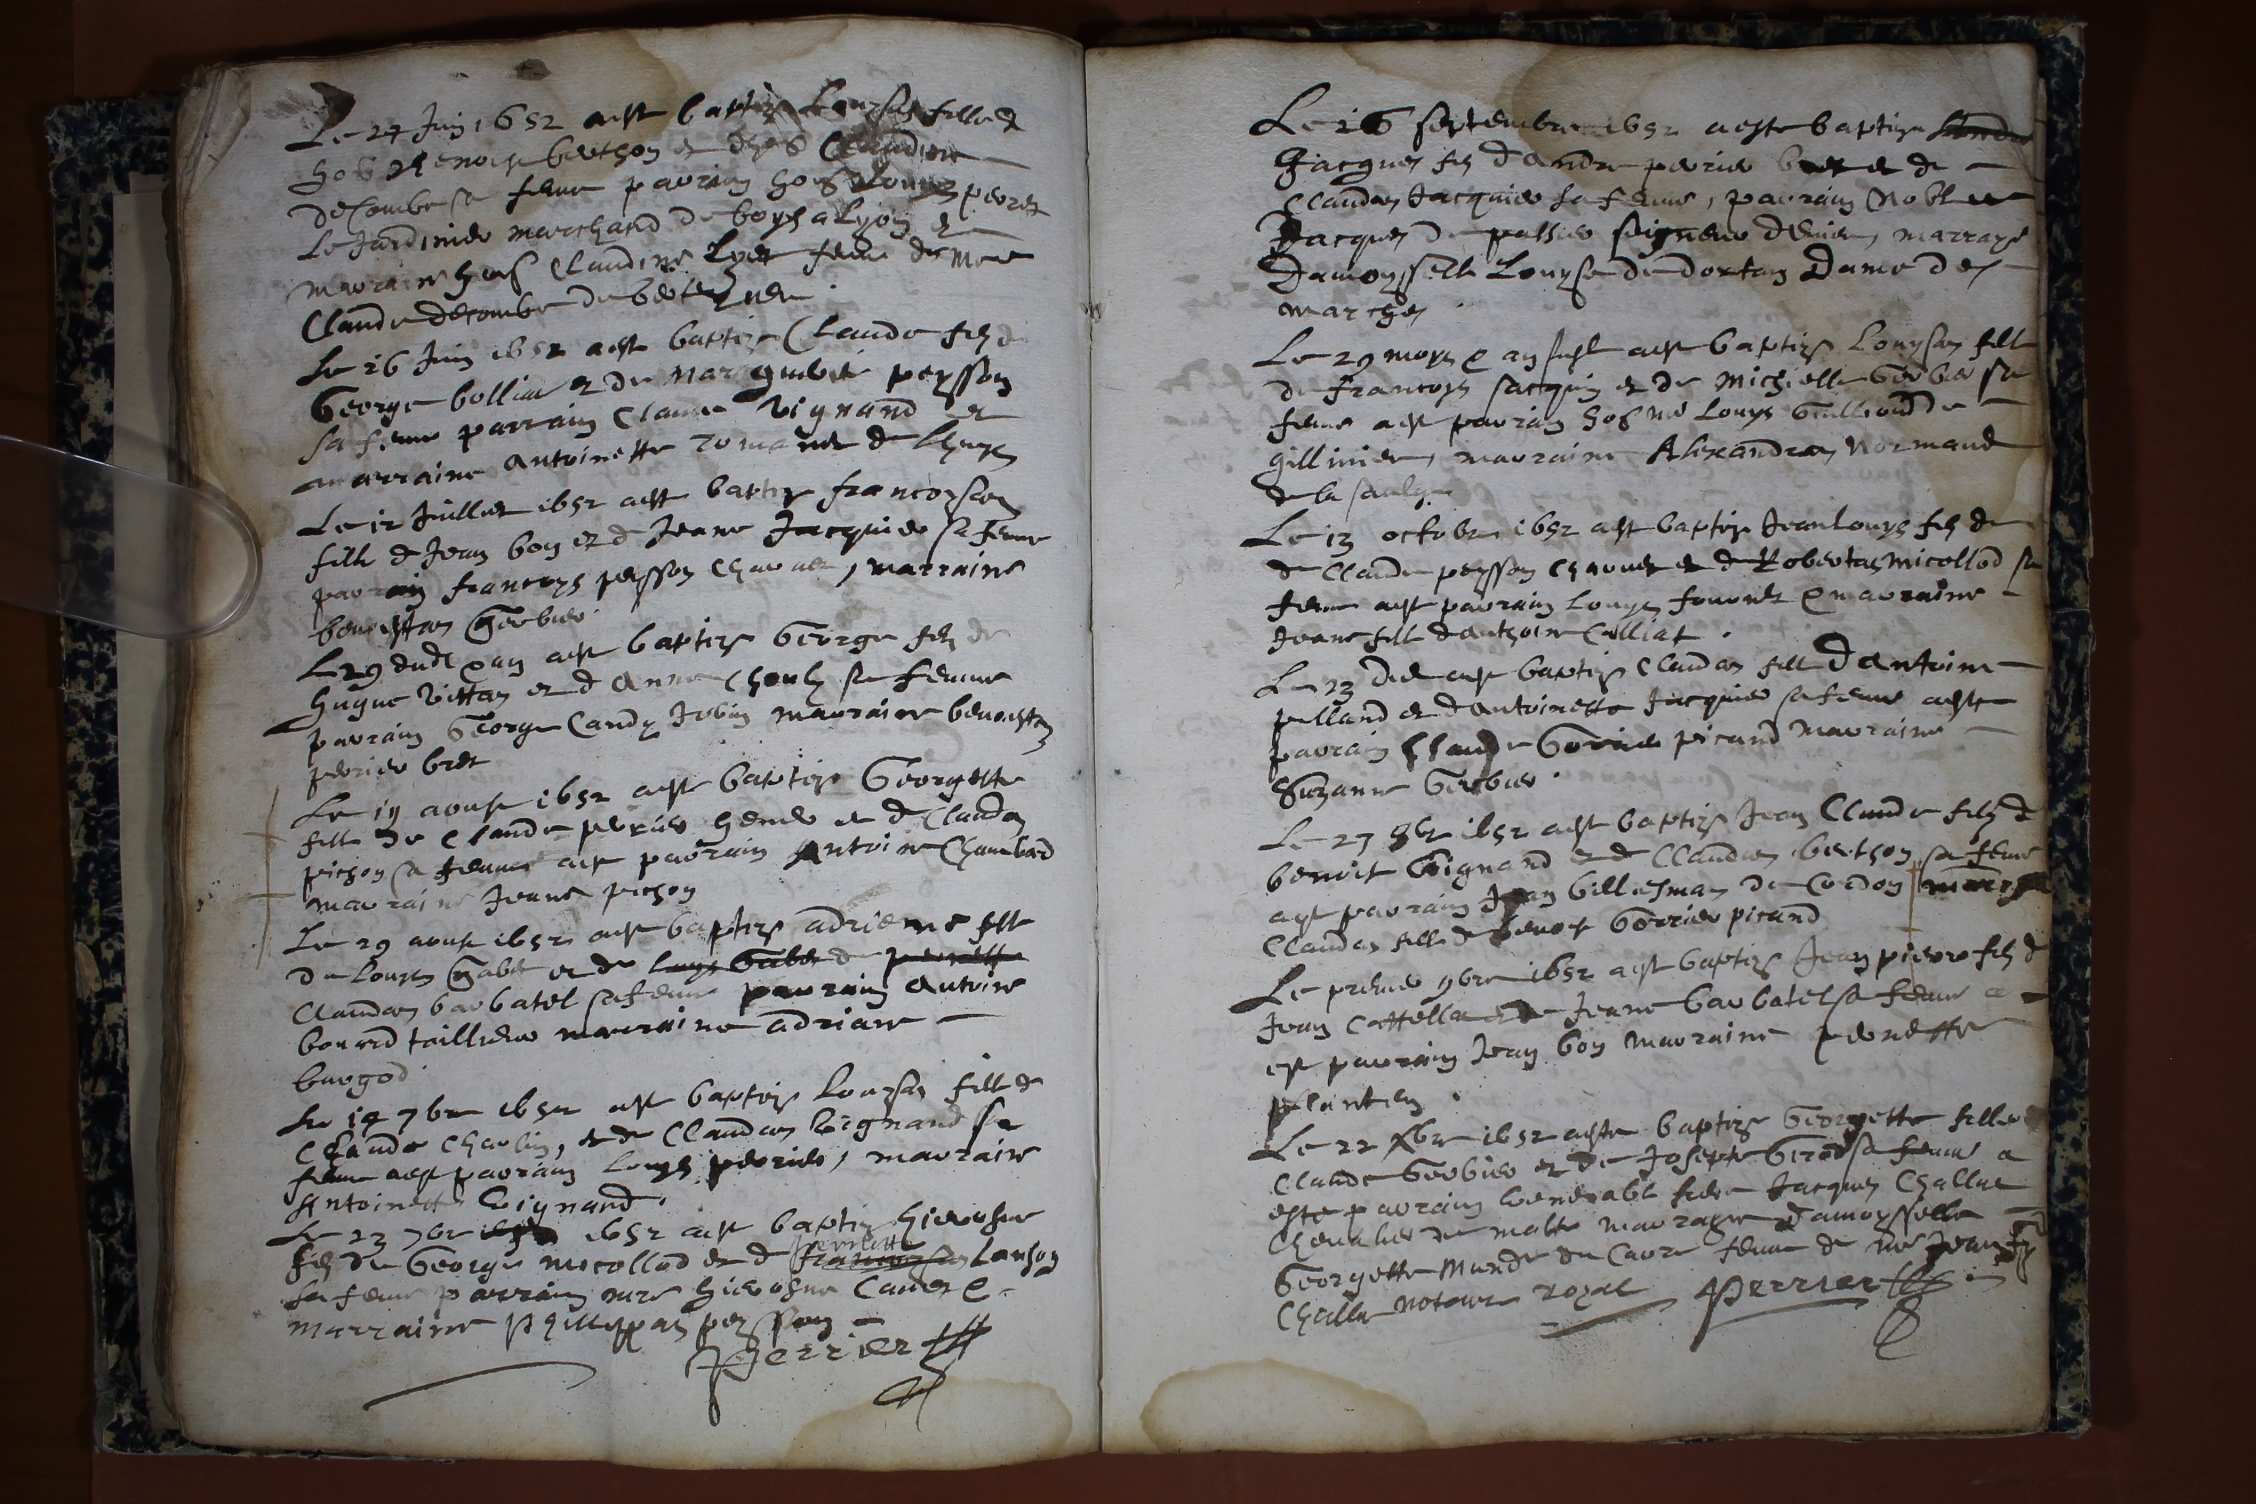 Le 24 Juin 1652 a est baptize Louyson fille de
hon. Benoist berthon et d'hon. Claudine
decombe sa femme parrain hon. perret
Le Jardinier marchand de boys a Lyon et
marraine hon. Claudine Lyet femme de Me
Claude decombe de
Le 26 Juin 1652 a est baptize Claude fils de
George bollia et de Marguerite peysson
sa femme parrain Claude Vignand et
marraine Antoinette romanet de
Le 12 Juillet 1652 a est baptize francoyson
fille de Jean bon et de Jeane Jacquier sa femme
parrain francoys peysson Charvet, marraine
benoistan Gerbier
Le 29 dudt & an a est baptize George fils de
hugue Vettan et d'Anne sa femme
parrain George Candy Jobin marraine benoistan
perrier bret
Le 19 aoust 1652 a est baptize Georgette
fille de Claude perrier et de Claudan
pichon sa femme a est parrain Antoine Chambard
marraine Jeane pichon
Le 29 aoust 1652 a est baptize adriene fille
de Louys Gabet et de
Claudan barbatel sa femme parrain antoine
bonard tailleur marraine adriane
burgod
Le 14 7bre 1652 a est baptize Louyson fille de
Claude Charlin, et de Claudan Vignand sa
femme a est parrain Louys perrier, marraine
Antoinette Vignand
Le 23 7bre 1652 a est baptize hierosme
fils de George micollod et de pernette Lanson
sa femme parrain mre hierosme Canet &
marraine philippan peysson
Perrier
Le 26 septembre 1652 a este baptize
Jacques fils d'Andre perrier bret et de
Claudan Jacquier sa femme, parrain Noble
Jacques de passier seigneur marrayne
Damoyselle Louyse de dortan Dame des
marches
Le 29 moys & an susdt a est baptize Louyson fille
de francoys Jacquin et de Michielle Gerbier sa
femme a est parrain hon. me Louys de
gillinieu, marraine Alexandran Normand
de la saulge
Le 13 octobre 1652 a est baptize Jean Louys fils de
de Claude peysson Charvet et de Robertan micollod sa
femme a est parrain Louys fornet & marraine
Jeane fille d'anthoine Colliat
Le 23 dud a est baptize Claudan fille d'antoine
pelland et d'antoinette Jacquier sa femme a este
parrain Claude Gerrier picand marraine
Suzanne Gerbier
Le 27 8bre 1652 a est baptize Jean Claude fils de
benoit Vignand et de Claudan berthon sa femme
a est parrain Jean de Cordon
Claudan fille de benoit Gerrier picand
Le premier 9bre 1652 a est baptize Jean pierre fils de
Jean et de Jeane barbatel sa femme a
est parrain Jean bon marraine pernette
plantin
Le 22 Xbre 1652 a este baptize Georgette fille de
Claude Gerbier et de Josepte Girod sa femme a
este parrain Venerable frere Jacques
Chevalier de malte marrayne Damoysselle
Georgette de femme de me Jean
notaire royal Perrier